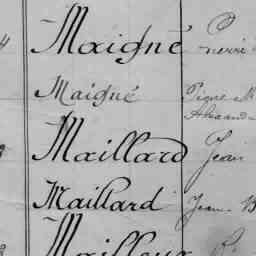 4 Maigné Pierre
Maigné Pigne M
Alexand
Maillard Jean
Maillard Jean B
Mailleux Pi